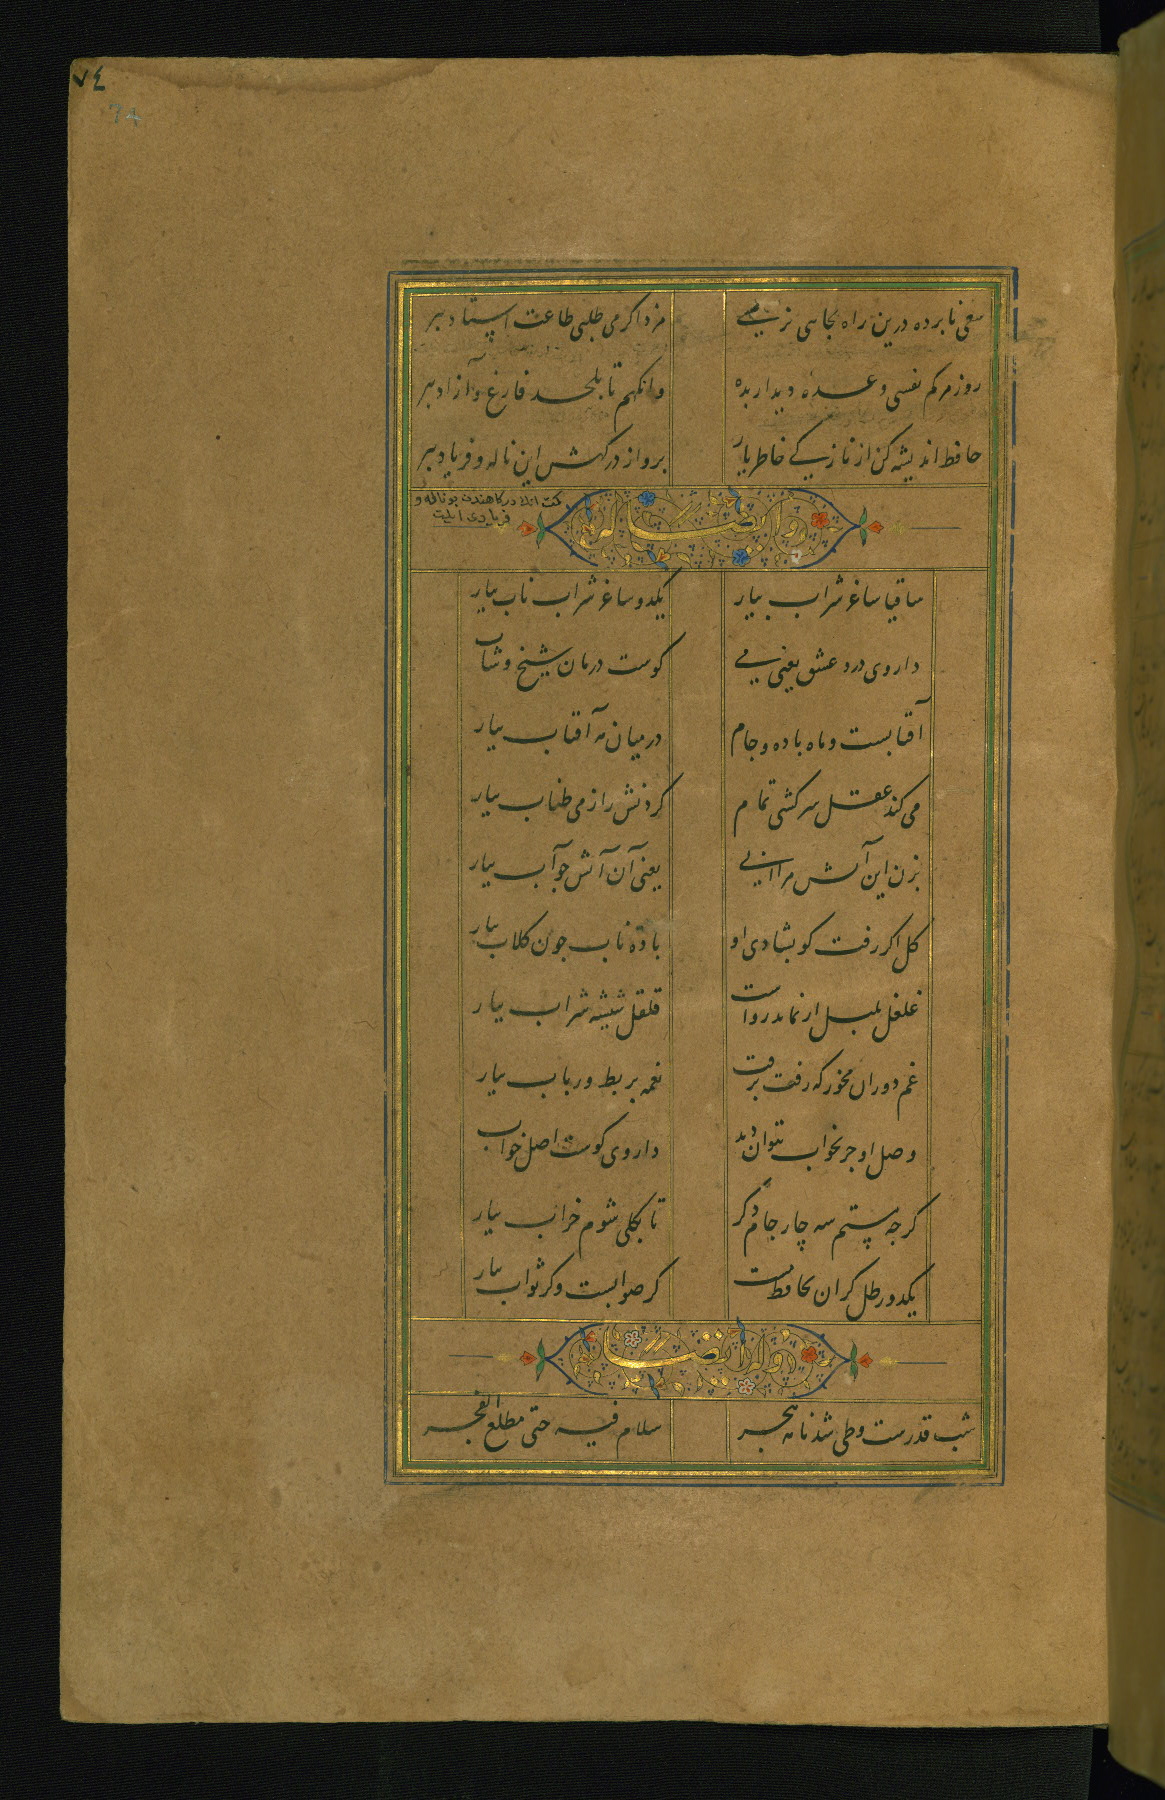 ٧٤
74
سعی نابرده درین راه بجایی نرسی
مزد اگر می طلبی طاعت استاد ببر
روز مرگم نفسی وعده دیدار بده
وانگهم تا بلحد فارغ و آزاد ببر
حافظ اندیشه کن از نازکی خاطر یار
برو از درگهش این ناله و فریاد ببر
وله ایضا
ساقیا ساغر شراب بیار
یکدو ساغر شراب ناب بیار
داروی درد عشق یعنی می
کوست درمان شیخ و شاب
آفتابست و ماه باده و جام
در میان مه آفتاب بیار
می کند عقل سرکشی تمام
گردنش را ز می طناب بیار
بزن این آتش مرا آبی
یعنی آن آتش جو آب بیار
کل اگر رفت گو بشادی او
باده ناب جون کلاب بیار
غلغل بلبل ار نماند رواست
قلقل شیشه شراب بیار
غم دوران مخور که رفت برفت
نغمه بربط و رباب بیار
وصل او جز بخواب نتوان دید
داروی کوست اصل خواب
کرجه مستم سه چار جام دکر
تا بکلی شوم خراب بیار
یکدو رطل کران بحافظ
کر صوابست و کر ثواب بیار
وله ایضا
شب قدرست و طی شد نامه هجر
سلام فیه حتی مطلع الفجر